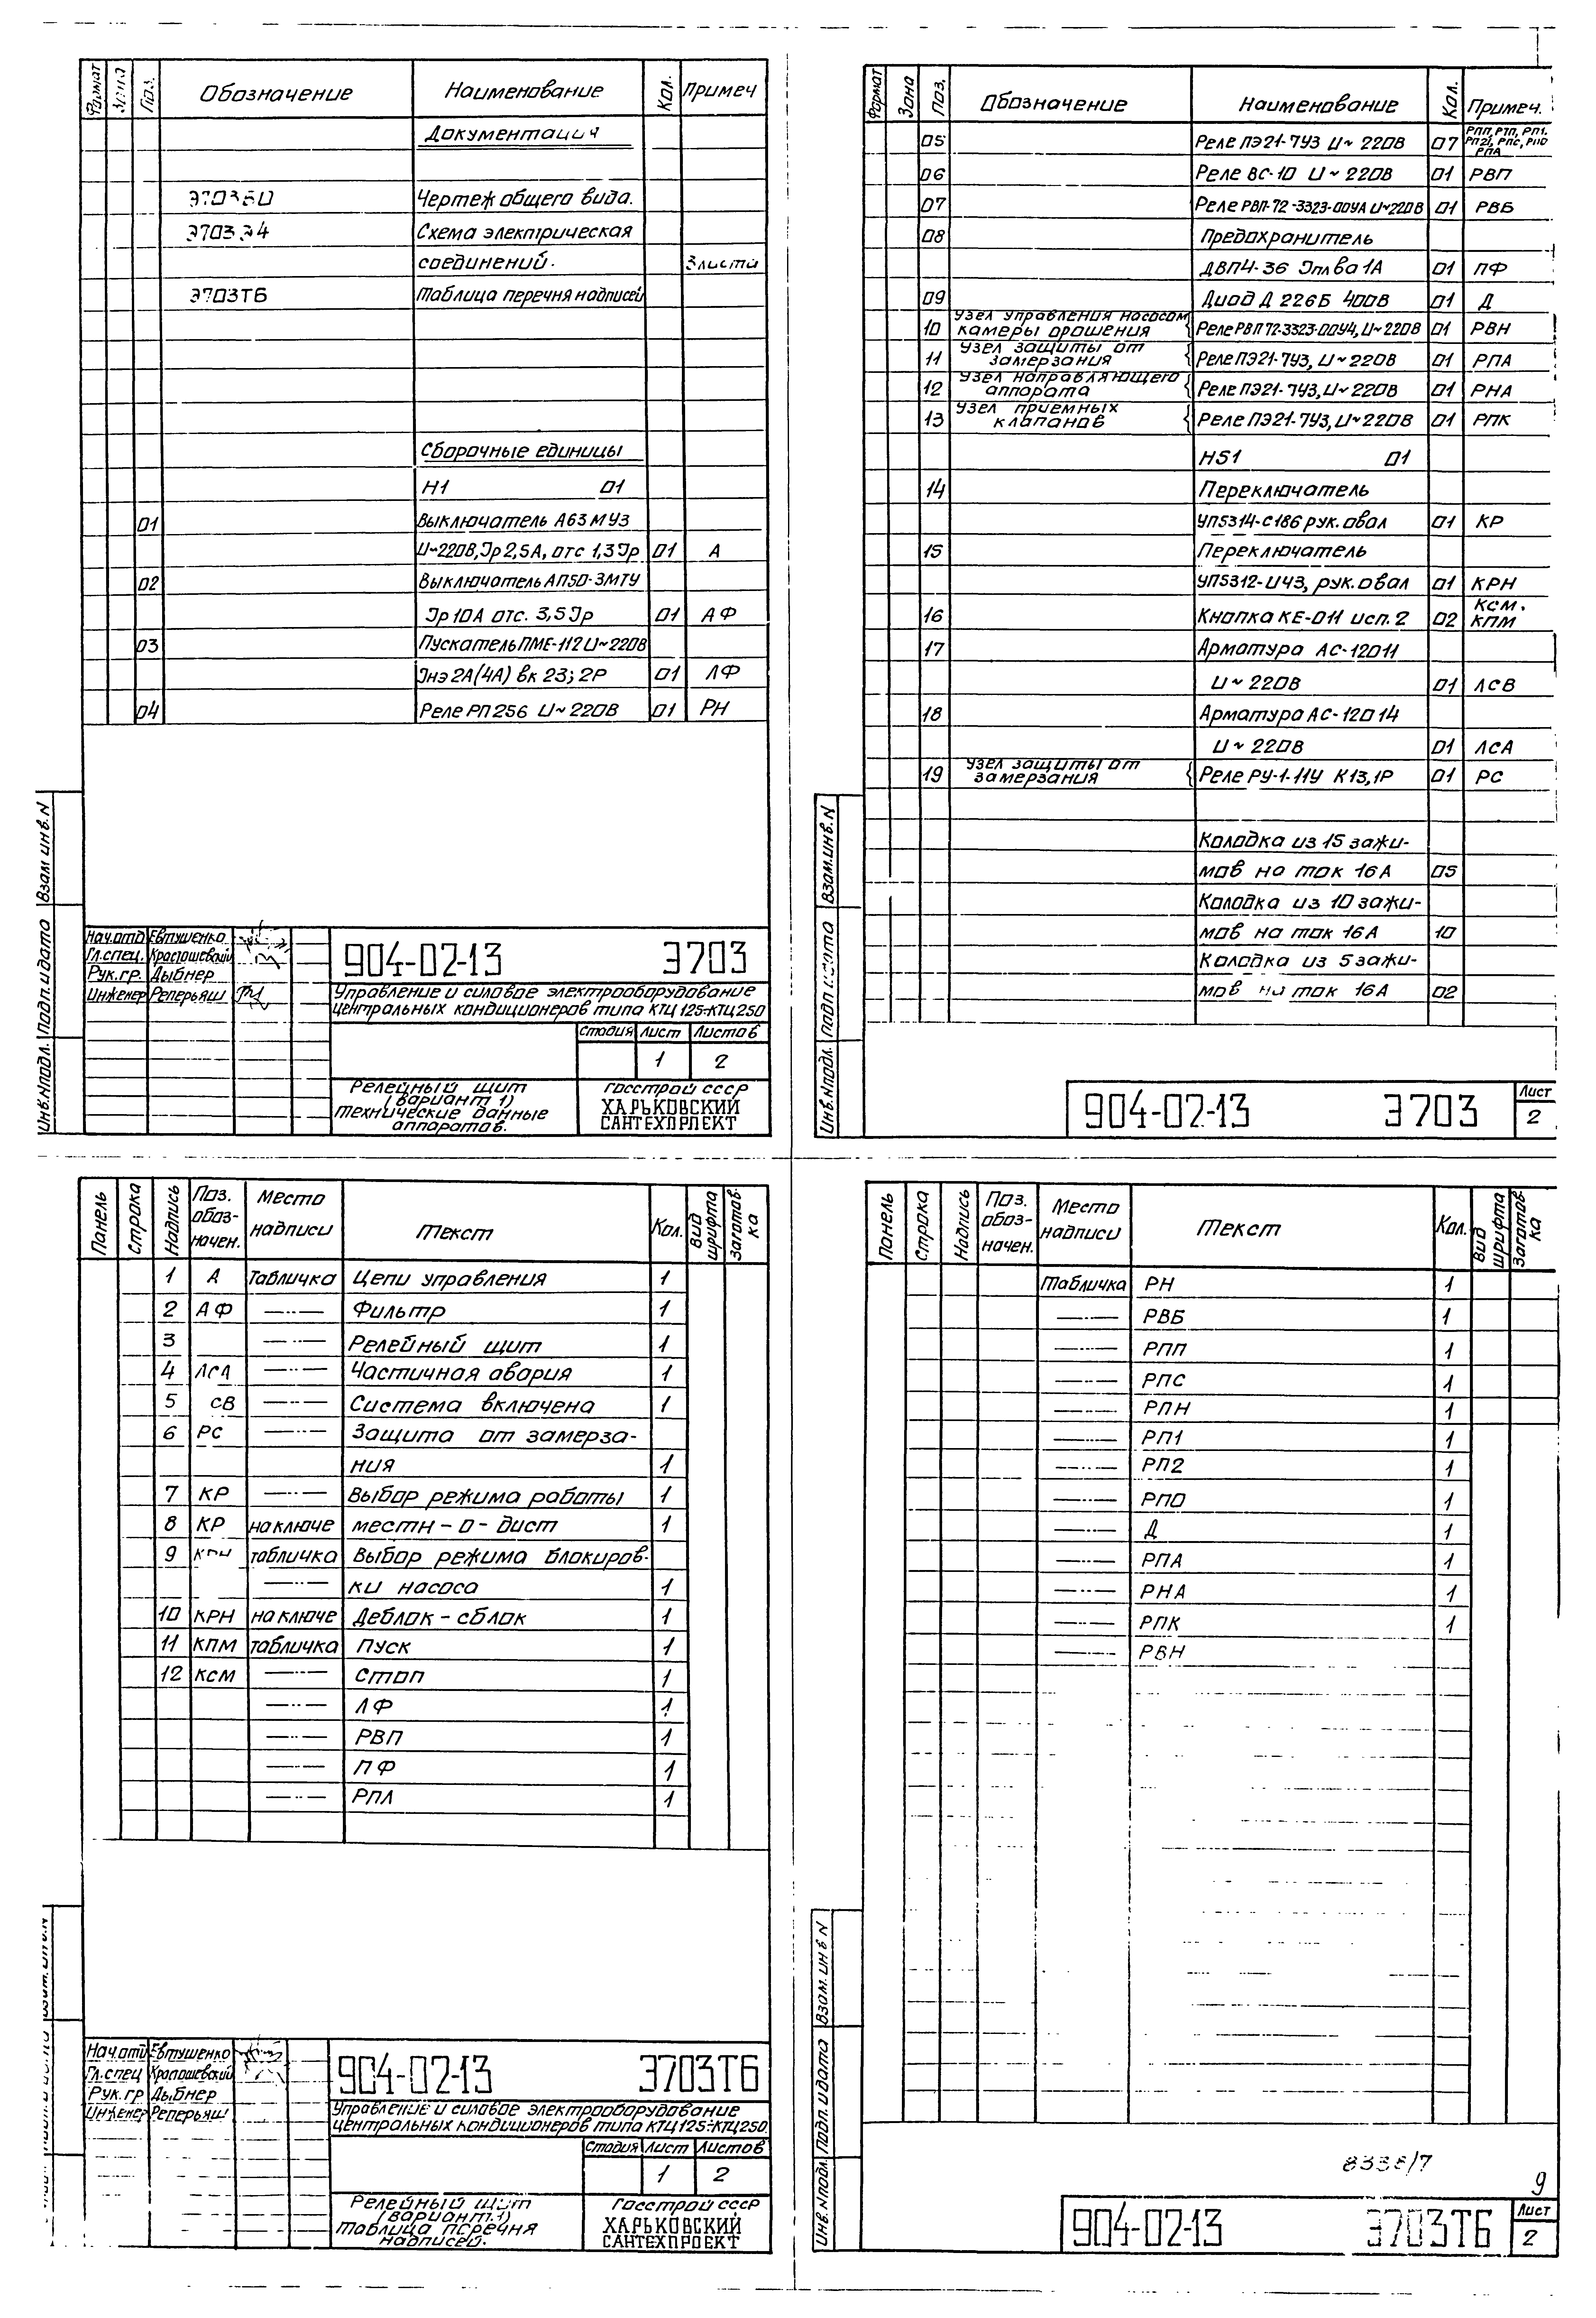 Формат Зона Поз. Обозначение Наименование Кол. Примеч
Документация
Чертеж общего вида.
Э703Э4 Схема электрическая
соединений. 3листа
Э703ТБ Таблица перечня надписей
Сборочные единицы
Н1 01
01 Выключатель А63МУ3
U~220В, Iр2,5А, отс 1,3Iр 01 А
02 Выключатель АП50-3МТУ
Iр10А отс. 3,5Iр 01 АФ
03 Пускатель ПМЕ-112 U~220В
Iнэ2А(4А) вк 23; 2Р 01 ЛФ
04 Реле РП256 U~220В 01 РН
Взам инв.N
Подп. и дата
Инв.Nподл.
Нач.отд Евтушенко
Гл.спец.
Рук.гр. Дыбнер
Инженер Реперьяш
904-02-13 Э703
Управление и силовое электрооборудование
центральных кондиционеров типа КТЦ125÷КТЦ250
Стадия Лист Листов
1 2
Релейный щит
(вариант 1)
Технические данные
аппаратов.
Госстрой СССР
ХАРЬКОВСКИЙ
САНТЕХПРОЕКТ
Формат Зона Поз. Обозначение Наименование Кол. Примеч.
05 Реле ПЭ21-7У3 U~220В 07 РПП, РПЛ, РП1,
РП2, РПС, РПО
РПА
06 Реле ВС-10 U~220В 01 РВП
07 Реле РВП-72-3323-00УА U~220В 01 РВБ
08 Предохранитель
ДВП4-36 Iпл ва 1А 01 ПФ
09 Диод Д226Б 400В 01 Д
10 Узел управления насосом
камеры орошения { Реле РВП72-3323-00У4, U~220В 01 РВН
11 Узел защиты от
замерзания { Реле ПЭ21-7У3, U~220В 01 РПА
12 Узел направляющего
аппората { Реле ПЭ21-7У3, U~220В 01 РНА
13 Узел приемных
клапанов { Реле ПЭ21-7У3, U~220В 01 РПК
НS1 01
14 Переключатель
УП5314-С186 рук. овал 01 КР
15 Переключатель
УП5312-И43, рук. овал 01 КРН
16 Кнопка КЕ-011 исп. 2 02 КСМ,
КПМ
17 Арматура АС-12011
U~220В 01 ЛСВ
18 Арматура АС-12014
U~220В 01 ЛСА
19 Узел защиты от
замерзания { Реле РУ-1-11У К13,1Р 01 РС
Колодка из 15 зажи-
мов на ток 16А 05
Колодка из 10 зажи-
мов на ток 16А 10
Колодка из 5 зажи-
мов на ток 16А 02
Взам.инв.N
Подп и дата
Инв.Nподл.
904-02-13 Э703
Лист
2
Панель Строка Надпись Поз. обоз-начен. Место надписи Текст Кол. Вид шрифта Заготов-ка
1 А Табличка Цепи управления 1
2 АФ —··— Фильтр 1
3 —··— Релейный щит 1
4 ЛСА —··— Частичная авария 1
5 СВ —··— Система включена 1
6 РС —··— Защита от замерза-
ния 1
7 КР —··— Выбор режима работы 1
8 КР на ключе местн-О-дист 1
9 табличка Выбор режима блокиров-
—··— ки насоса 1
10 КРН на ключе Деблок-сблок 1
11 КПМ табличка Пуск 1
12 КСМ —··— Стоп 1
—··— ЛФ 1
—··— РВП 1
—··— ПФ 1
—··— РПЛ 1
Нач.отд Евтушенко
Гл.спец
Рук.гр Дыбнер
Инженер Реперьяш
904-02-13 Э703ТБ
Управление и силовое электрооборудование
центральных кондиционеров типа КТЦ125÷КТЦ250.
Стадия Лист Листов
1 2
Релейный щит
(вариант 1)
Таблица перечня
надписей.
Госстрой СССР
ХАРЬКОВСКИЙ
САНТЕХПРОЕКТ
Панель Строка Надпись Поз. обоз-начен. Место надписи Текст Кол. Вид шрифта Заготов-ка
Табличка РН 1
—··— РВБ 1
—··— РПП 1
—··— РПС 1
—··— РПН 1
—··— РП1 1
—··— РП2 1
—··— РПО 1
—··— Д 1
—··— РПА 1
—··— РНА 1
—··— РПК 1
—··— РВН
Взам. инв N
Подп. и дата
Инв.Nподл.
9
904-02-13 Э703ТБ
Лист
2